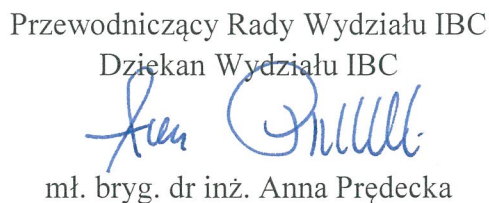 Przewodniczący Rady Wydziału IBC
Dziekan Wydziału IBC
mł. bryg. dr inż. Anna Prędecka